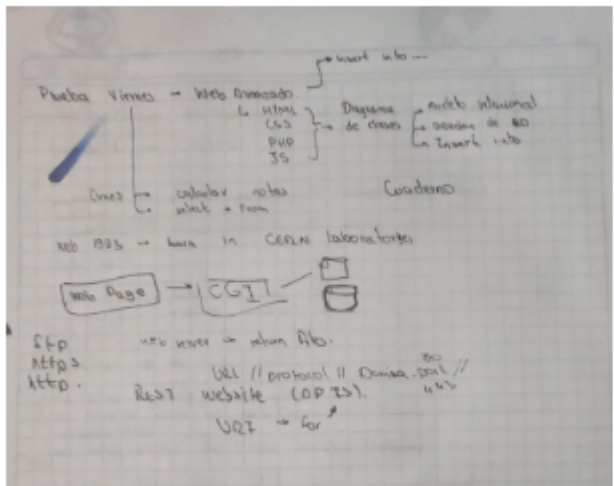 insert into ...
Prueba Viernes → Web Avanzado
HTML
CSS
PHP
JS
Diagrama de clases
modelo relacional
Insert into
calcular notas
select + from
Cuaderno
web → born in CERN laboratories
Web Page → CGI
ftp
https
http.
web server → return files.
URL // protocol // Domina. port //
80
443
REST website
→ for